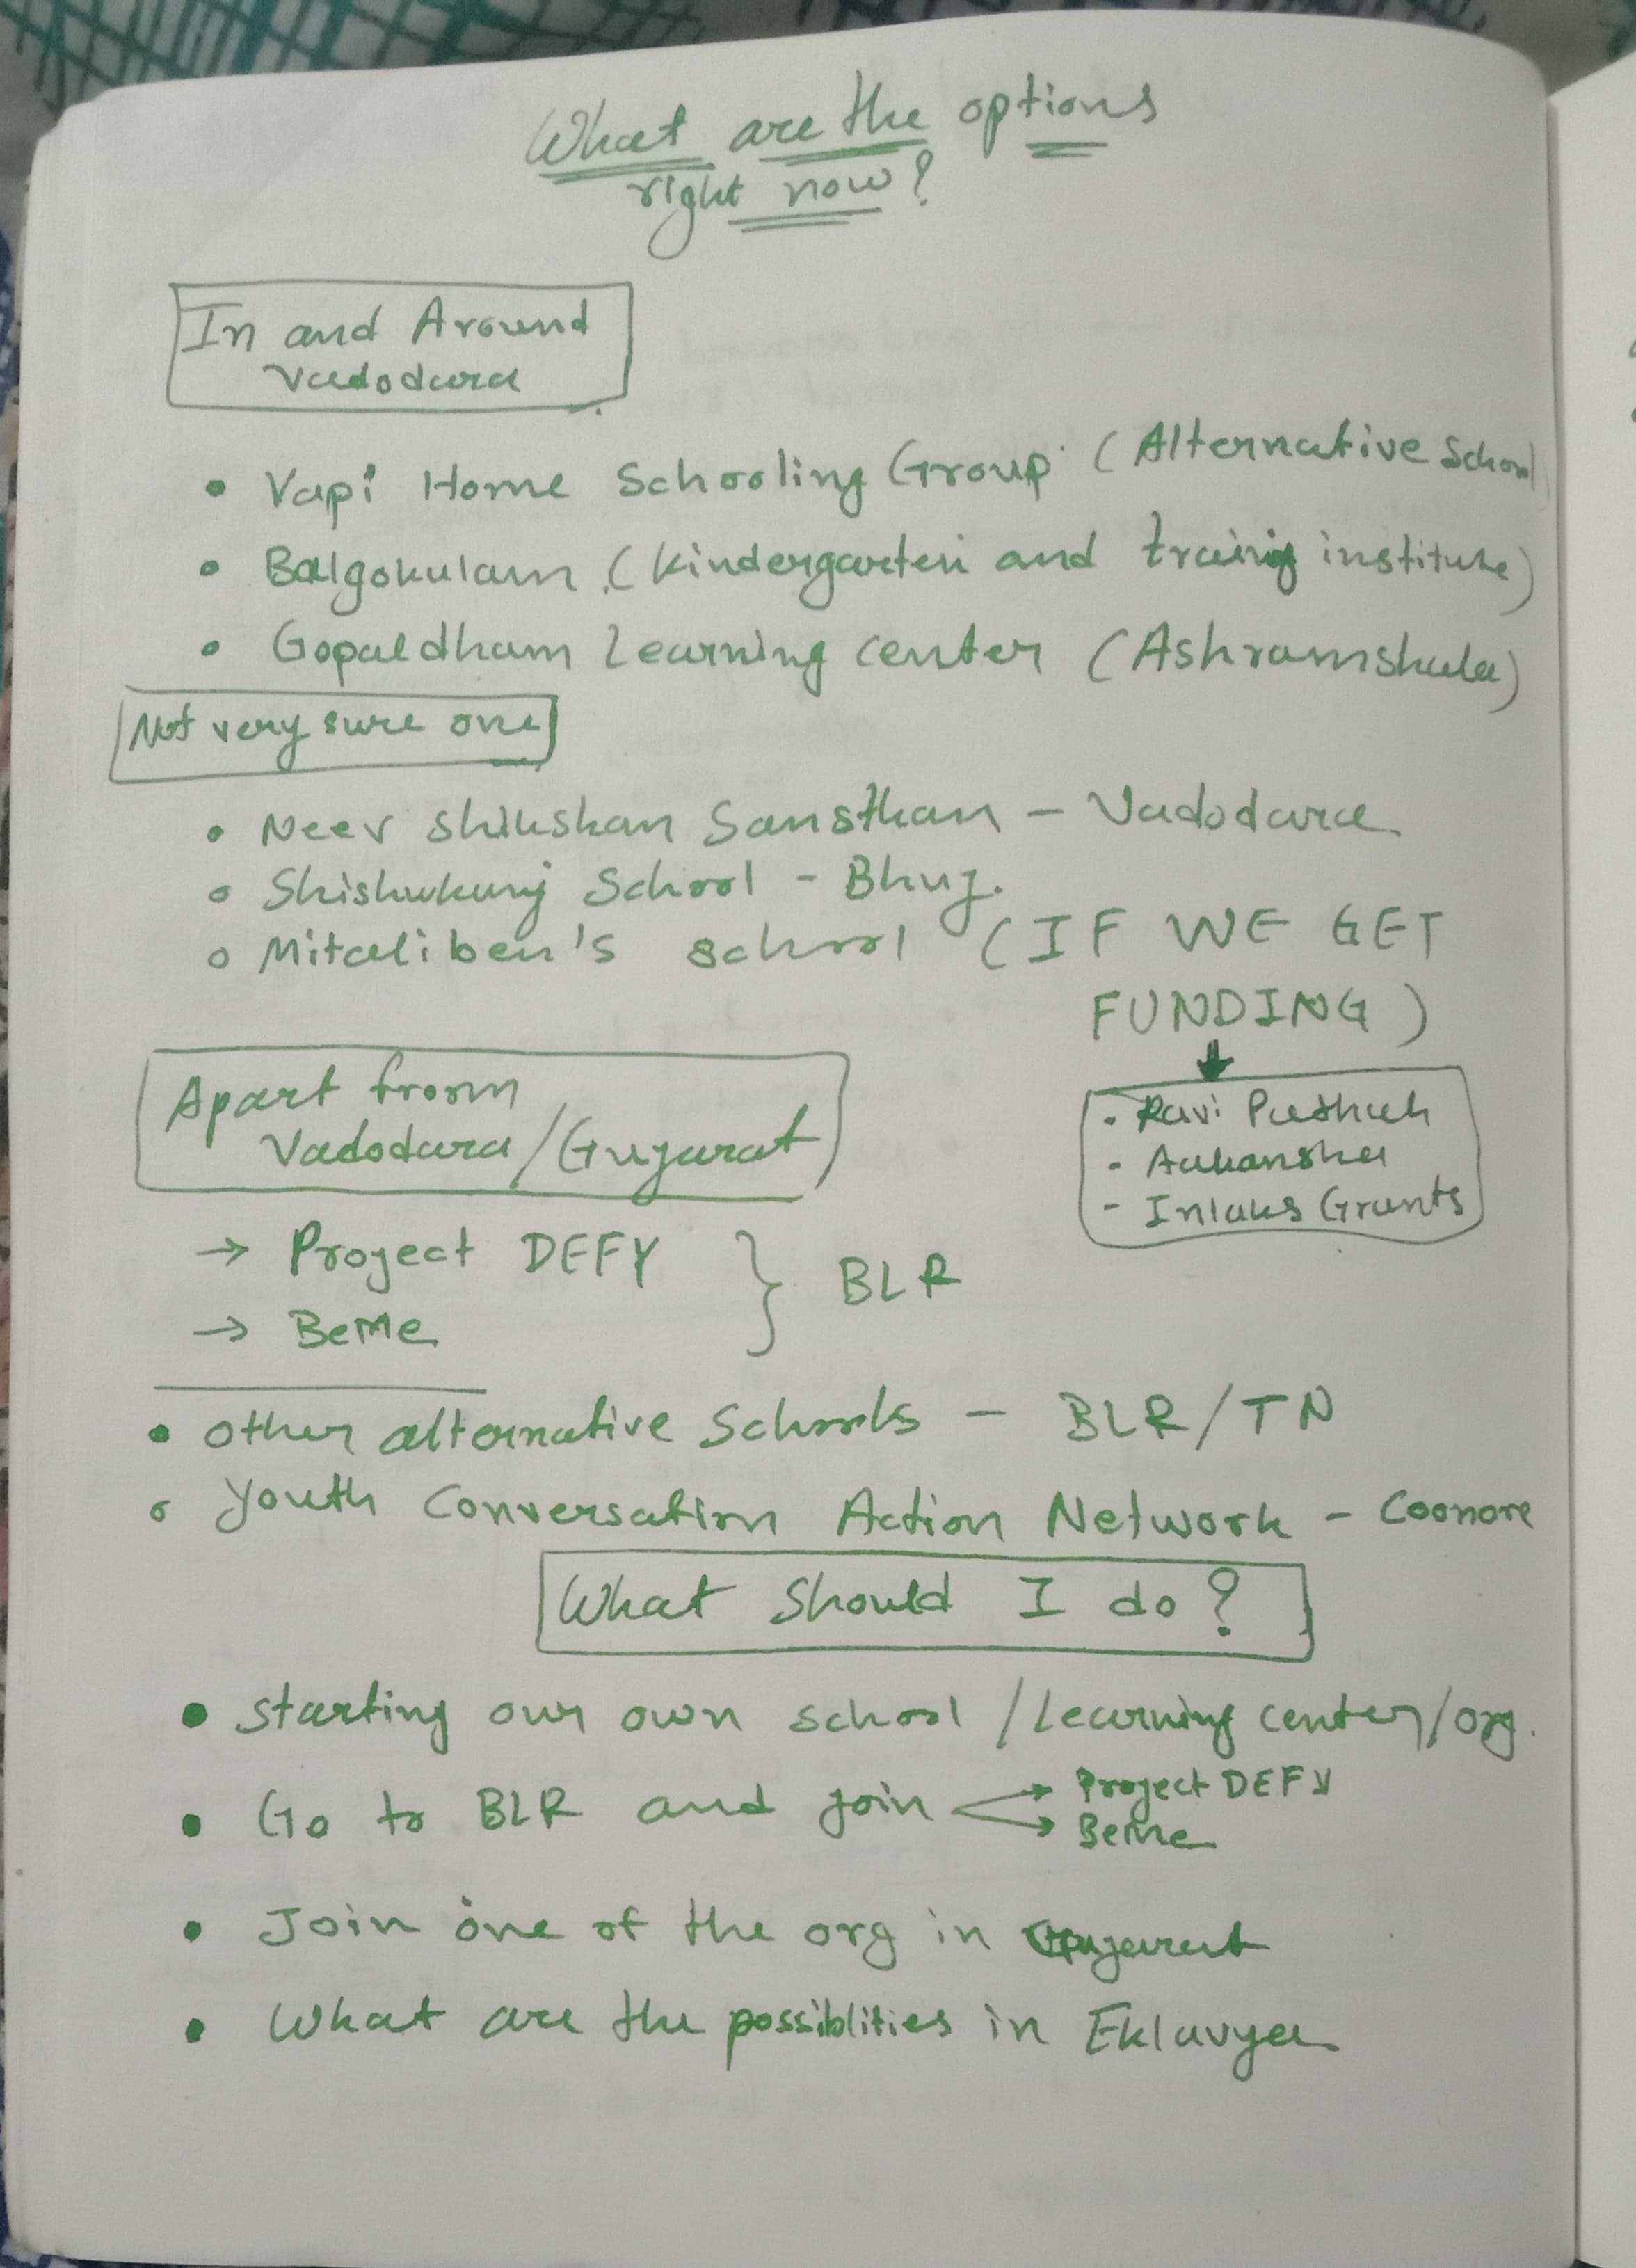 What are the options
right now?
In and Around
Vadodara
• Vapi Home Schooling Group (Alternative School
• Balgokulam (Kindergarten and training institute)
• Gopaldham Learning center (Ashramshala)
Not very sure one
• Neev Shikshan Sansthan – Vadodara
• Shishukunj School – Bhuj.
• Mitaliben's school (IF WE GET
FUNDING)
• Ravi
• Aakanska
- Inlaks Grants
Apart from
Vadodara/Gujarat
→ Project DEFY } BLR
→ BeMe
• Other alternative Schools – BLR/TN
• Youth Conversation Action Network – Coonore
What Should I do?
• Starting our own school / Learning center/org.
• Go to BLR and join → Project DEFY
→ BeMe
• Join one of the org in Gujarat
• What are the possiblities in Eklavya